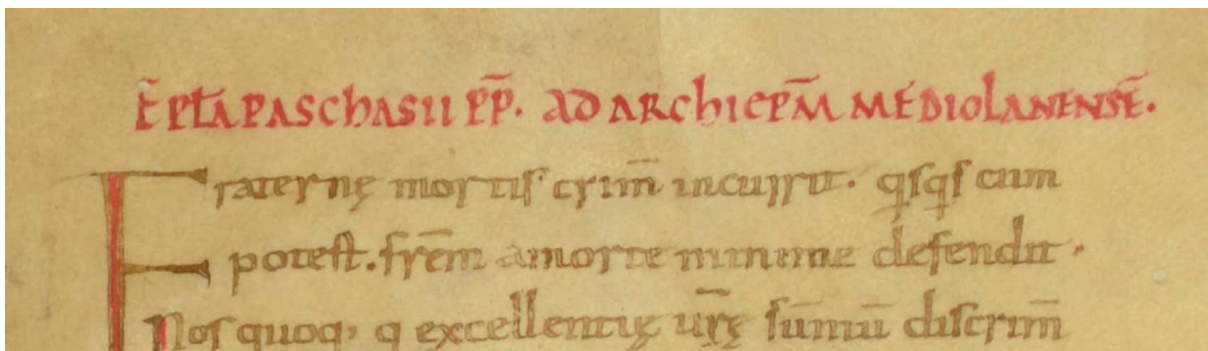 EPL̄A PASCHASII P̄P. AD ARCHIEPM̄ MEDIOLANENSĒ.
Fraternę mortis crim̄ incurrit. qisqis cum
potest. frēm a morte minime defendit.
Nos quoq; q excellentię ur̄ę sūmū discrim̄